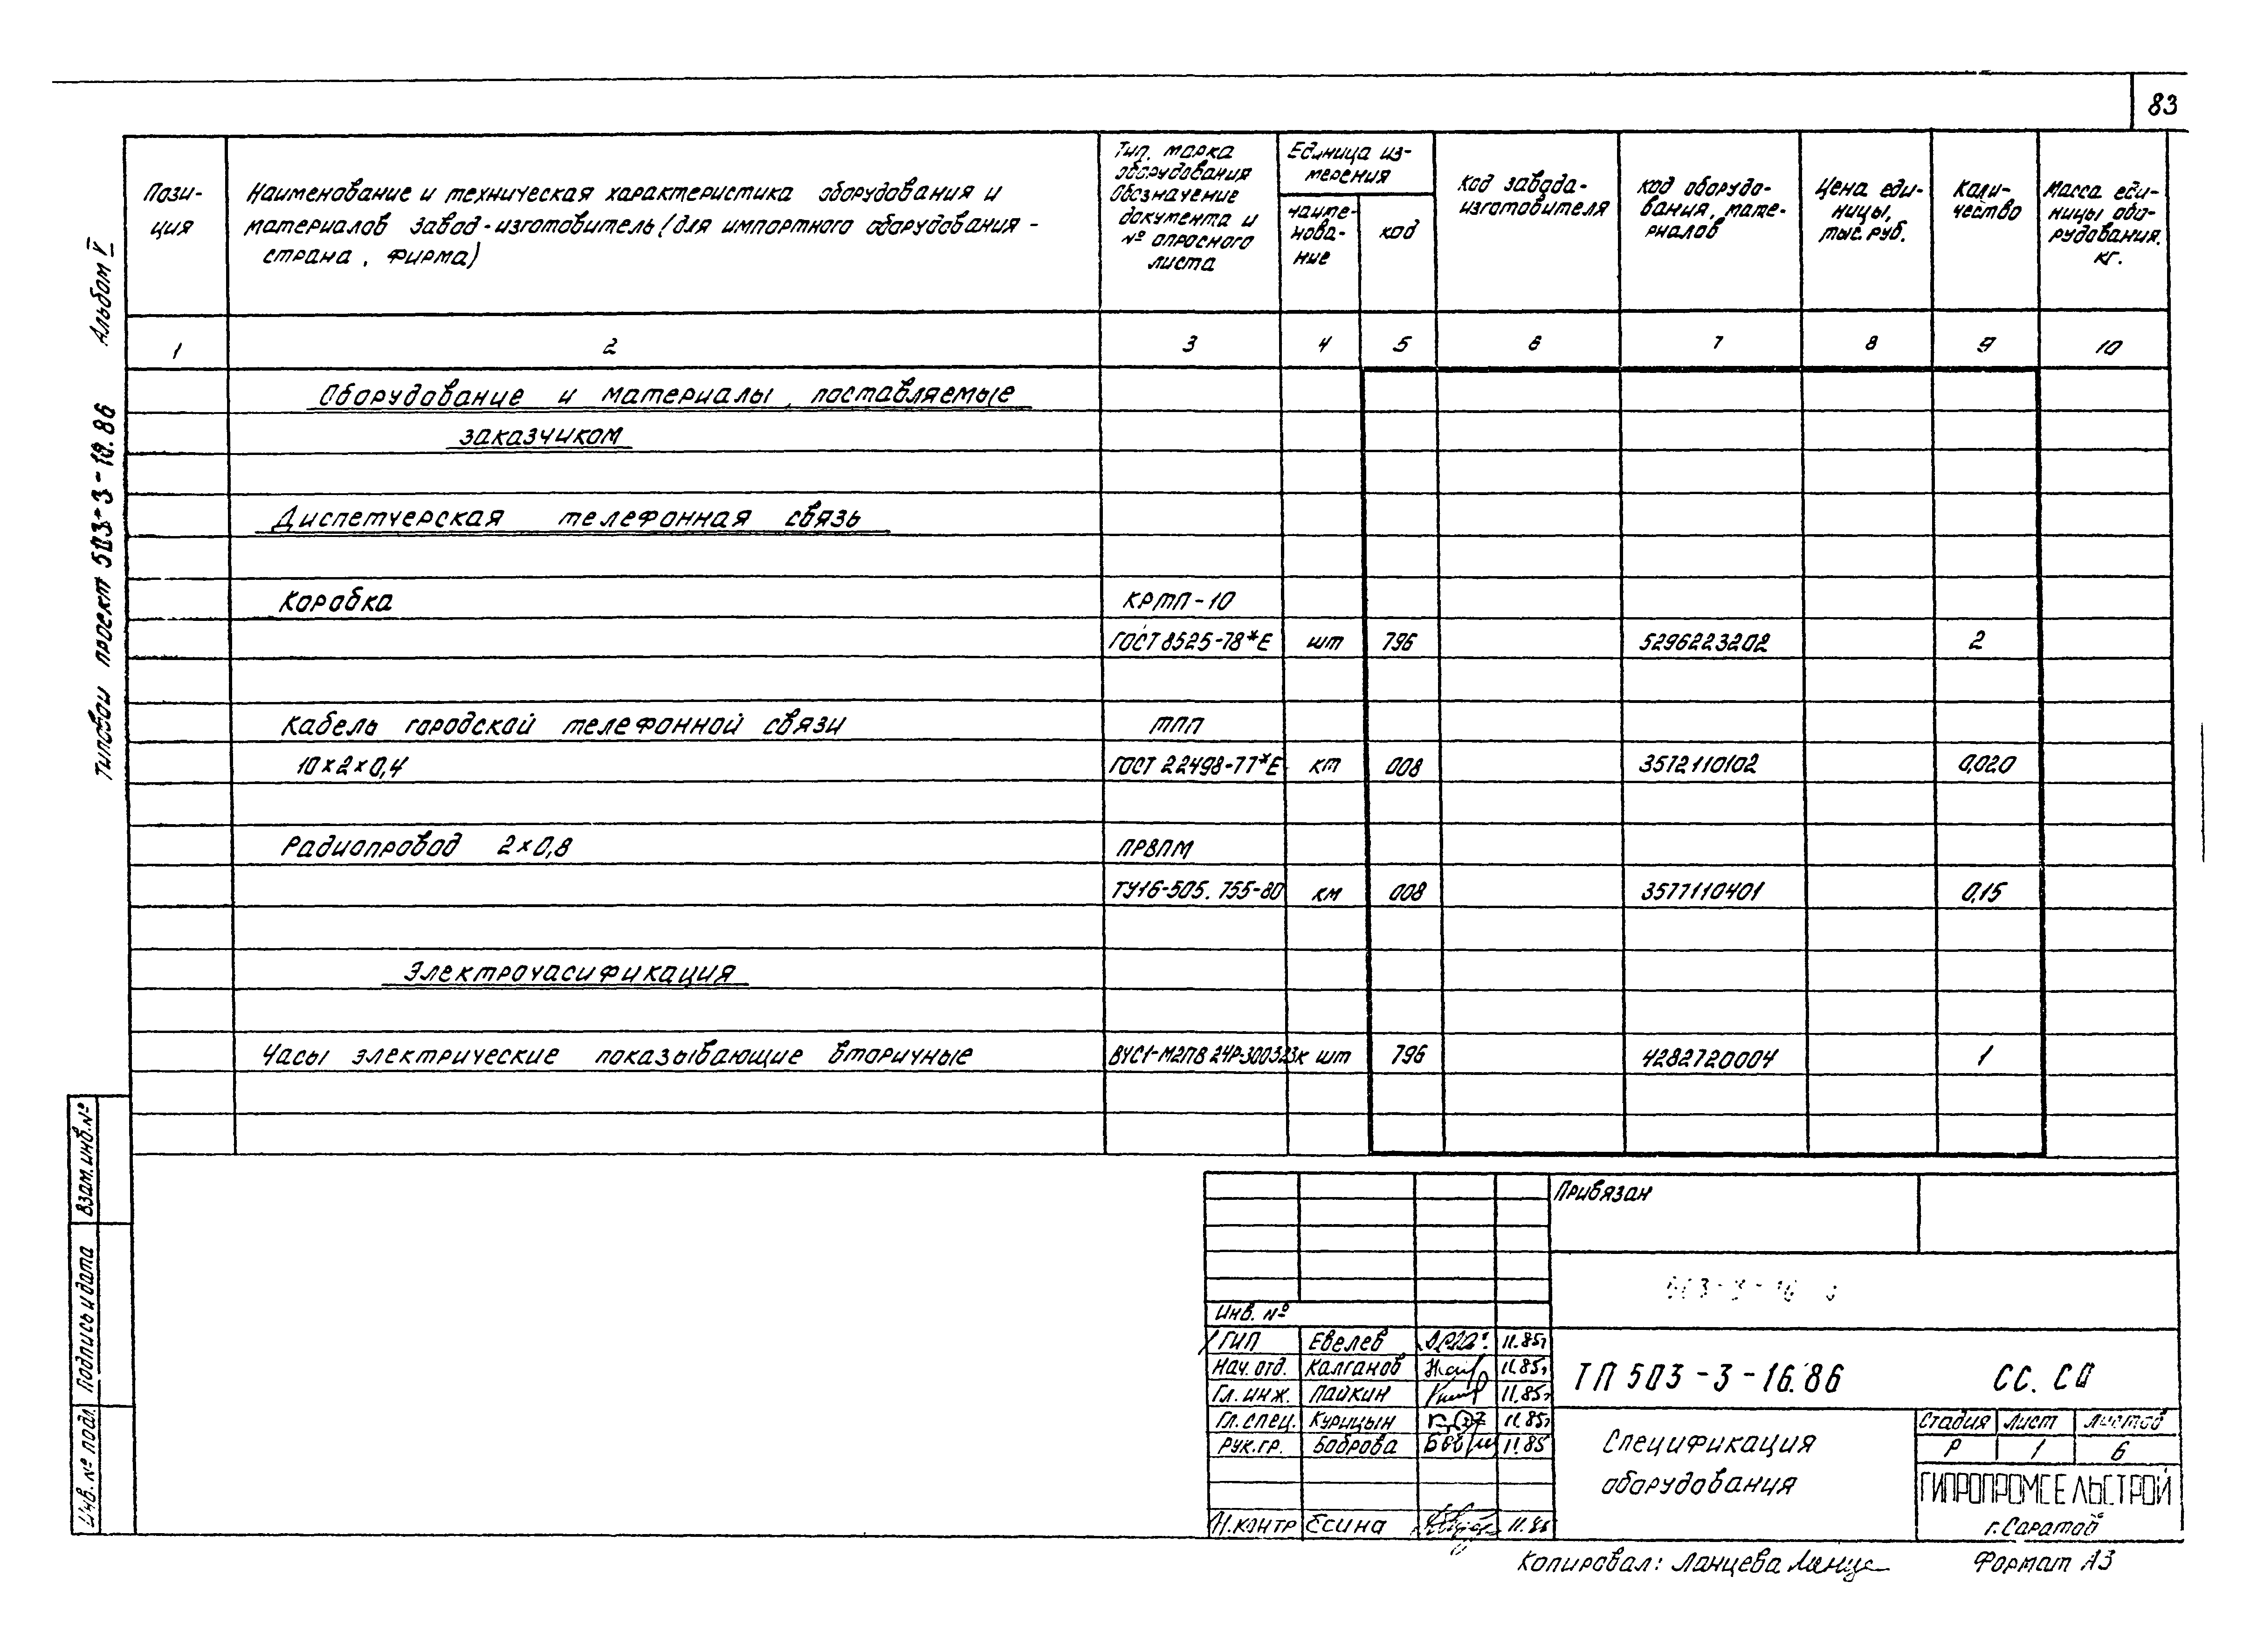 83
Альбом V
Типовой проект 503-3-18.86
Пози-
ция
Наименование и техническая характеристика оборудования и
материалов завод-изготовитель (для импортного оборудования -
страна, фирма)
Тип, марка
оборудования
Обозначение
документа и
№ опросного
листа
Единица из-
мерения
наиме-
нова-
ние
код
Код завода-
изготовителя
Код оборудо-
вания, мате-
риалов
Цена еди-
ницы,
тыс. руб.
Коли-
чество
Масса еди-
ницы обо-
рудования,
кг.
1 2 3 4 5 6 7 8 9 10
Оборудование и материалы, поставляемые
заказчиком
Диспетчерская телефонная связь
Коробка КРТП-10
ГОСТ 8525-78*Е шт 796 5296223202 2
Кабель городской телефонной связи ТПП
10×2×0,4 ГОСТ 22498-77*Е км 008 3572110102 0,020
Радиопровод 2×0,8 ПРВПМ
ТУ16-505.755-80 км 008 3577110401 0,15
Электрочасификация
Часы электрические показывающие вторичные ВУС1-М2ПВ 24Р-300323К шт 796 4282720004 1
Взам. инв. №
Подпись и дата
Инв. № подл.
Привязан
Инв. №
ГИП Евелев 11.85г
Нач. отд. Калганов 11.85г
Гл. инж. Пайкин 11.85г
Гл. спец. Курицын 11.85г
Рук. гр. Боброва 11.85
Н. контр Есина 11.85
ТП 503-3-16.86 СС. СО
Спецификация
оборудования
Стадия Лист Листов
Р 1 6
ГИПРОПРОМСЕЛЬСТРОЙ
г. Саратов
Копировал: Ланцева
Формат А3